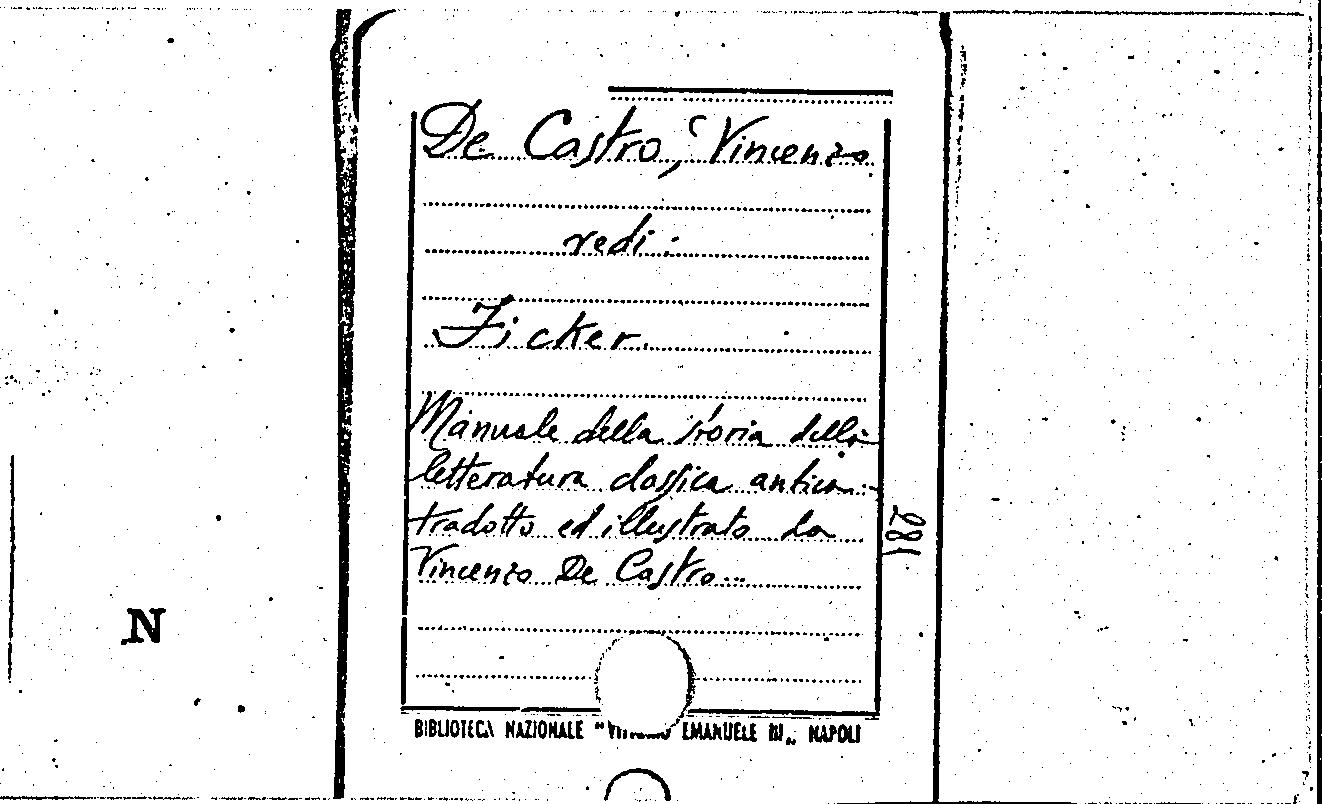 De Castro, Vincenzo
vedi:
Ficker.
Manuale della storia della
letteratura classica antica..
tradotto ed illustrato da
Vincenzo De Castro...
281
N
BIBLIOTECA NAZIONALE " EMANUELE III„ NAPOLI